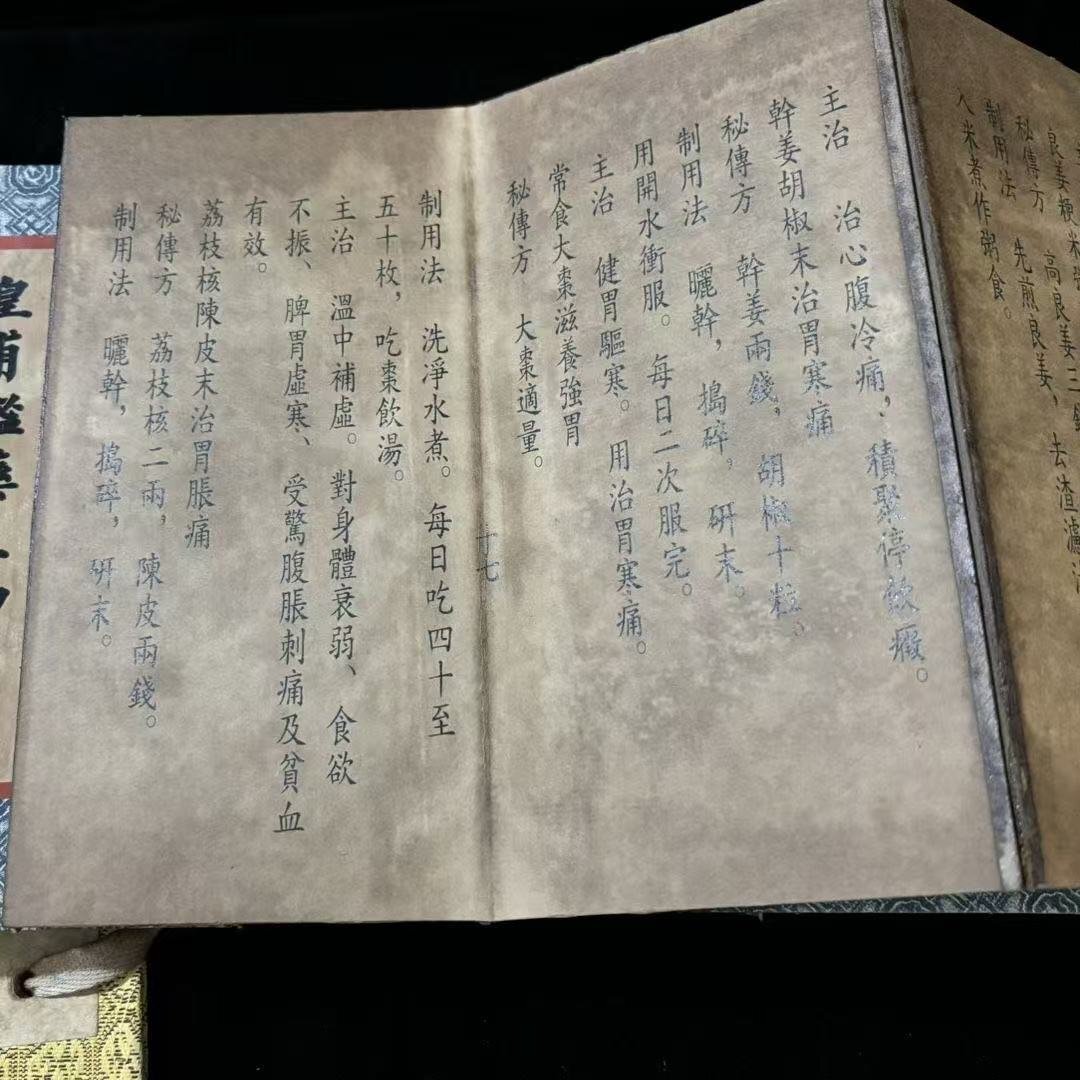 良姜粳米粥
秘傳方　高良姜三錢
制用法　先煎良姜，去渣濾
入米煮作粥食。
主治　治心腹冷痛，積聚停飲癥。
幹姜胡椒末治胃寒痛
秘傳方　幹姜兩錢，胡椒十粒。
制用法　曬幹，搗碎，研末。
用開水衝服。每日二次服完。
主治　健胃驅寒。用治胃寒痛。
常食大棗滋養強胃
秘傳方　大棗適量。
十七
制用法　洗淨水煮。每日吃四十至
五十枚，吃棗飲湯。
主治　溫中補虛。對身體衰弱、食欲
不振、脾胃虛寒、受驚腹脹刺痛及貧血
有效。
荔枝核陳皮末治胃脹痛
秘傳方　荔枝核二兩，陳皮兩錢。
制用法　曬幹，搗碎，研末。